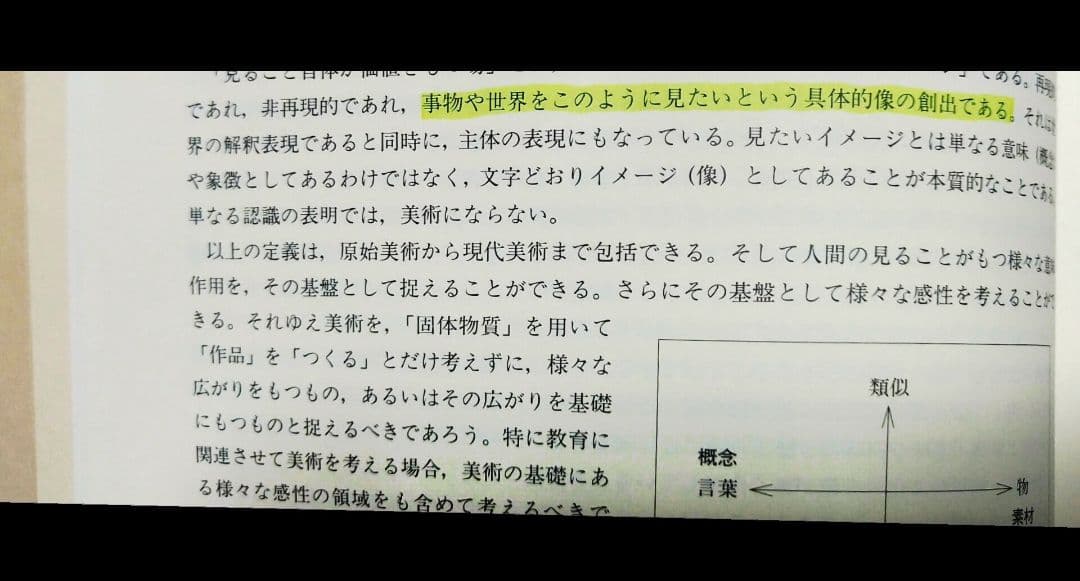 「見ること自体が価値をもつ
である。再現
であれ，非再現的であれ，事物や世界をこのように見たいという具体的像の創出である。それは
界の解釈表現であると同時に，主体の表現にもなっている。見たいイメージとは単なる意味（概念
や象徴としてあるわけではなく，文字どおりイメージ（像）としてあることが本質的なことである
単なる認識の表明では，美術にならない。
以上の定義は，原始美術から現代美術まで包括できる。そして人間の見ることがもつ様々な意味
作用を，その基盤として捉えることができる。さらにその基盤として様々な感性を考えることがで
きる。それゆえ美術を，「固体物質」を用いて
「作品」を「つくる」とだけ考えずに，様々な
広がりをもつもの，あるいはその広がりを基礎
にもつものと捉えるべきであろう。特に教育に
関連させて美術を考える場合，美術の基礎にあ
る様々な感性の領域をも含めて考えるべきで
類似
概念
言葉
物
素材